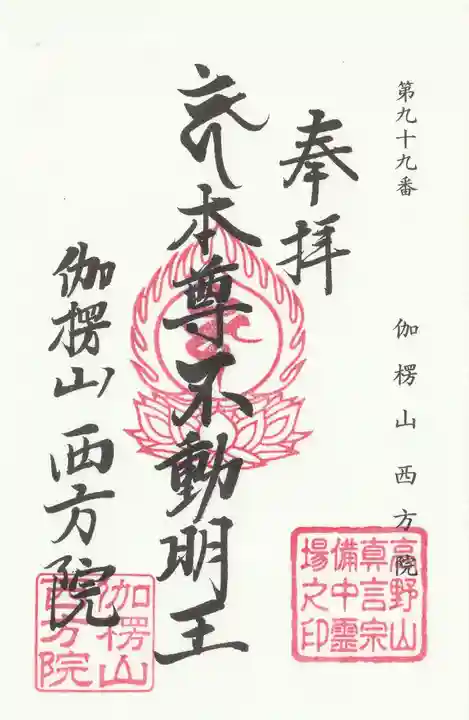 第九十九番 伽楞山西方院
奉拝
本尊不動明王
伽楞山西方院
高野山
真言宗
備中霊
場之印
伽楞山
西方院